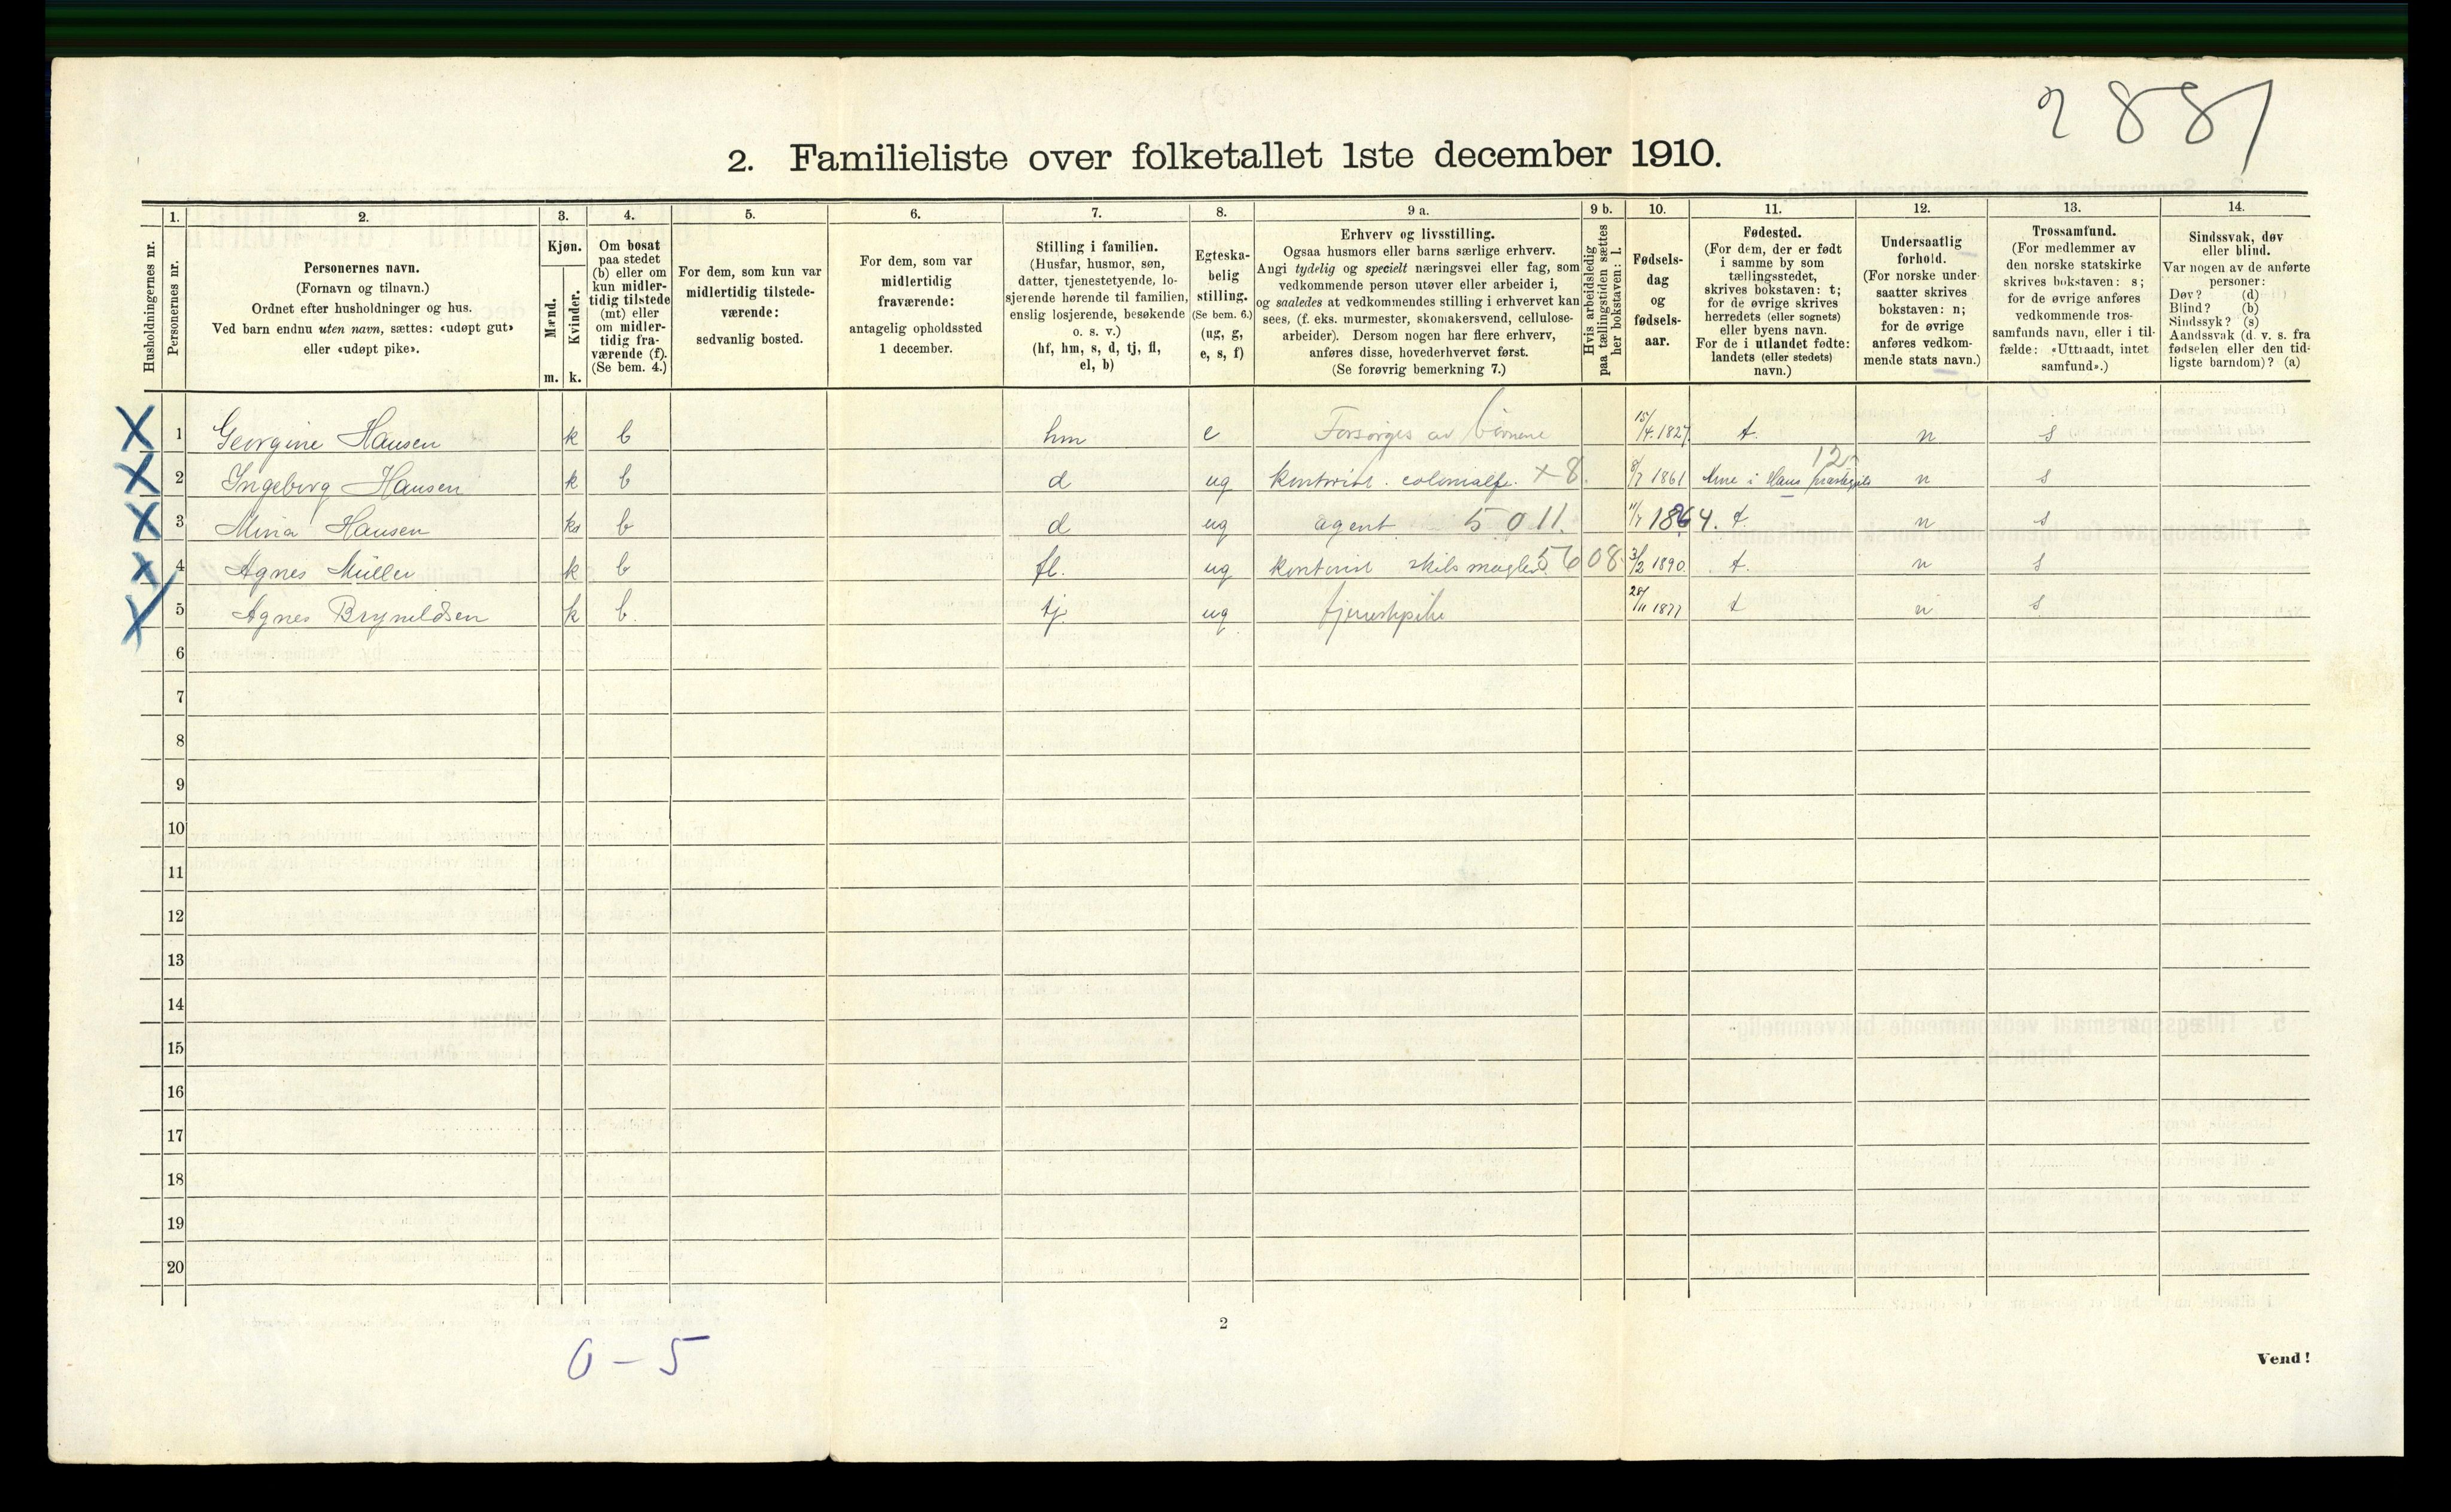 2887
2. Familieliste over folketallet 1ste december 1910.
Husholdningernes nr.
1.
Personernes nr.
2.
Personernes navn.
(Fornavn og tilnavn.)
Ordnet efter husholdninger og hus.
Ved barn endnu uten navn, sættes: «udøpt gut»
eller «udøpt pike».
3.
Kjøn.
Mænd.
Kvinder.
m. k.
4.
Om bosat
paa stedet
(b) eller om
kun midler-
tidig tilstede
(mt) eller
om midler-
tidig fra-
værende (f).
(Se bem. 4.)
5.
For dem, som kun var
midlertidig tilstede-
værende:
sedvanlig bosted.
6.
For dem, som var
midlertidig
fraværende:
antagelig opholdssted
1 december.
7.
Stilling i familien.
(Husfar, husmor, søn,
datter, tjenestetyende, lo-
sjerende hørende til familien,
enslig losjerende, besøkende
o. s. v.)
(hf, hm, s, d, tj, fl,
el, b)
8.
Egteska-
belig
stilling.
(Se bem. 6.)
(ug, g,
e, s, f)
9 a.
Erhverv og livsstilling.
Ogsaa husmors eller barns særlige erhverv.
Angi tydelig og specielt næringsvei eller fag, som
vedkommende person utøver eller arbeider i,
og saaledes at vedkommendes stilling i erhvervet kan
sees, (f. eks. murmester, skomakersvend, cellulose-
arbeider). Dersom nogen har flere erhverv,
anføres disse, hovederhvervet først.
(Se forøvrig bemerkning 7.)
9 b.
Hvis arbeidsledig
paa tællingstiden sættes
her bokstaven: l.
10.
Fødsels-
dag
og
fødsels-
aar.
11.
Fødested.
(For dem, der er født
i samme by som
tællingsstedet,
skrives bokstaven: t;
for de øvrige skrives
herredets (eller sognets)
eller byens navn.
For de i utlandet fødte:
landets (eller stedets)
navn.)
12.
Undersaatlig
forhold.
(For norske under-
saatter skrives
bokstaven: n;
for de øvrige
anføres vedkom-
mende stats navn.)
13.
Trossamfund.
(For medlemmer av
den norske statskirke
skrives bokstaven: s;
for de øvrige anføres
vedkommende tros-
samfunds navn, eller i til-
fælde: «Uttraadt, intet
samfund».)
14.
Sindssvak, døv
eller blind.
Var nogen av de anførte
personer:
Døv? (d)
Blind? (b)
Sindssyk? (s)
Aandssvak (d. v. s. fra
fødselen eller den tid-
ligste barndom)? (a)
X 1 Georgine Hansen k b hm e Forsørges av børnene 15/4. 1827. t. n s
X 2 Ingeborg Hansen k b d ug kontorist. colonialf. + 8. 8/7 1861 Arne i Haus 12 n s
X 3 Mina Hansen k b d ug agent 5 0 11. 11/7 1864. t. n s
X 4 Agnes Müller k b fl. ug kontorist skibsmægler 56 08 3/2 1890. t. n s
X 5 Agnes Bryneldsen k b. tj. ug tjenestpike 28/11 1877 t n s
6
7
8
9
10
11
12
13
14
15
16
17
18
19
20
0 - 5
2
Vend!